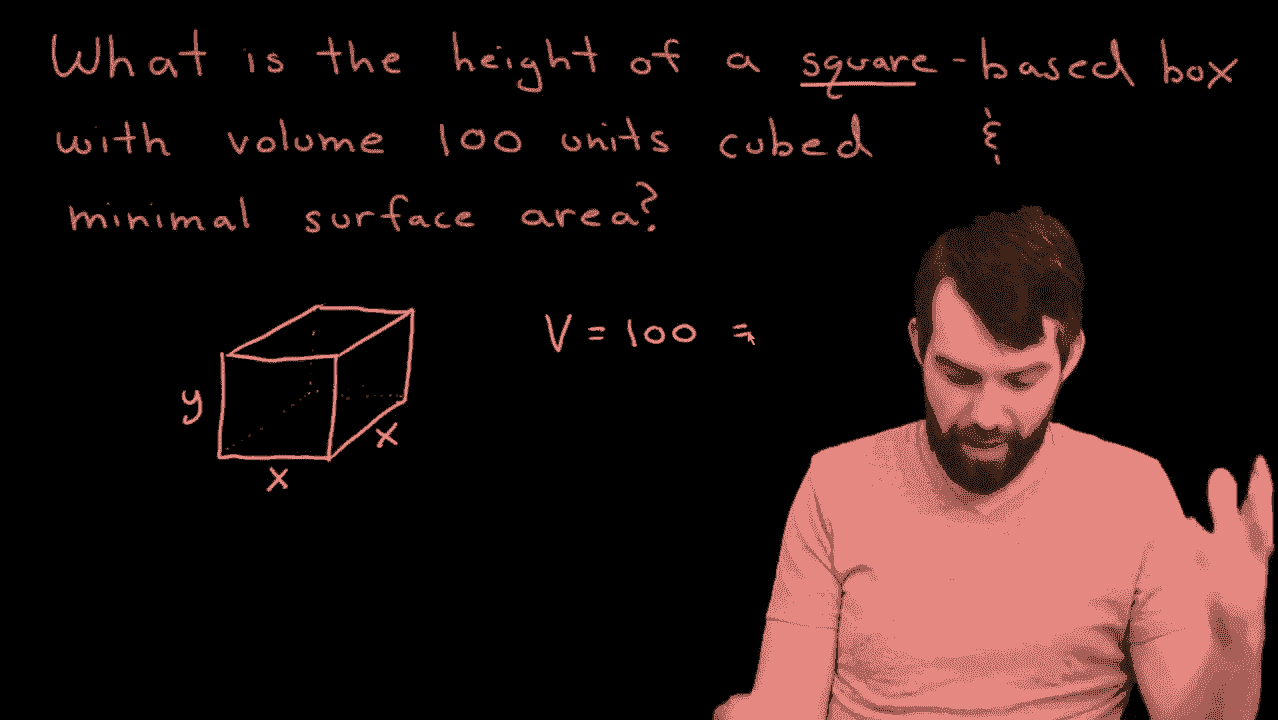 What is the height of a square-based box
with volume 100 units cubed &
minimal surface area?
V = 100 =
y
x
x